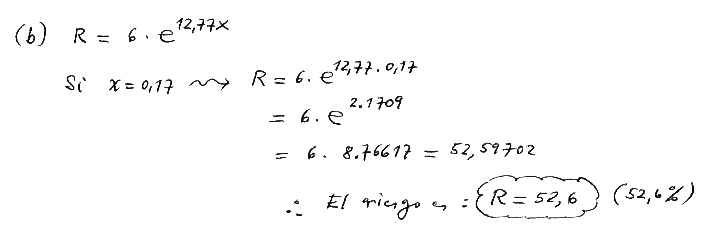 (b) R = 6 . e^12,77x
Si x = 0,17 ⇝ R = 6. e^12,77 . 0,17
= 6. e^2.1709
= 6. 8.76617 = 52,59702
∴ El riesgo es : R = 52,6 (52,6%)